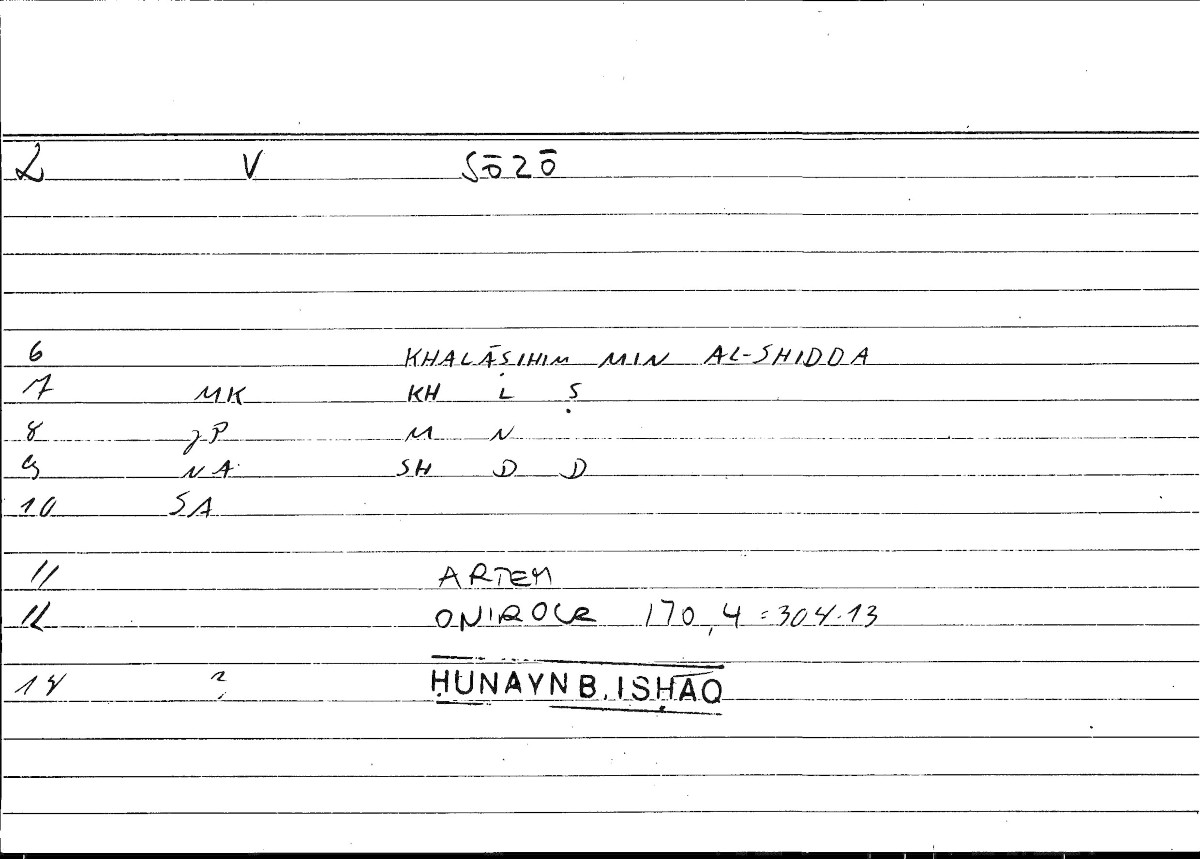 2 V SŌZŌ
6 KHALĀṢIHIM MIN AL-SHIDDA
7 MK KH L Ṣ
8 JP M N
9 NA SH D D
10 SA
11 ARTEM
12 ONIROCR 170,4=304.13
14 ? ḤUNAYN B. ISḤĀQ